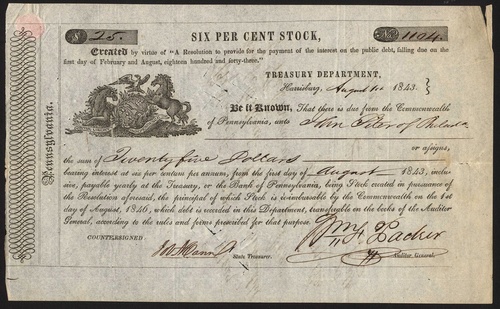 $ 25. SIX PER CENT STOCK, No. 1104.
Created by virtue of "A Resolution to provide for the payment of the interest on the public debt, falling due on the
first day of February and August, eighteen hundred and forty-three."
TREASURY DEPARTMENT,
Harrisburg, August 1st 1843.
Be it Known, That there is due from the Commonwealth
of Pennsylvania, unto John of Philada
or assigns,
the sum of Twenty five Dollars
bearing interest at six per centum per annum, from the first day of August 1843, inclu-
sive, payable yearly at the Treasury, or the Bank of Pennsylvania, being Stock created in pursuance of
the Resolution aforesaid, the principal of which Stock is reimbursable by the Commonwealth on the 1st
day of August, 1846, which debt is recorded in this Department, transferable on the books of the Auditor
General, according to the rules and forms prescribed for that purpose.
COUNTERSIGNED:
Job Mann State Treasurer.
Wm F. Packer Auditor General.
Pennsylvania.